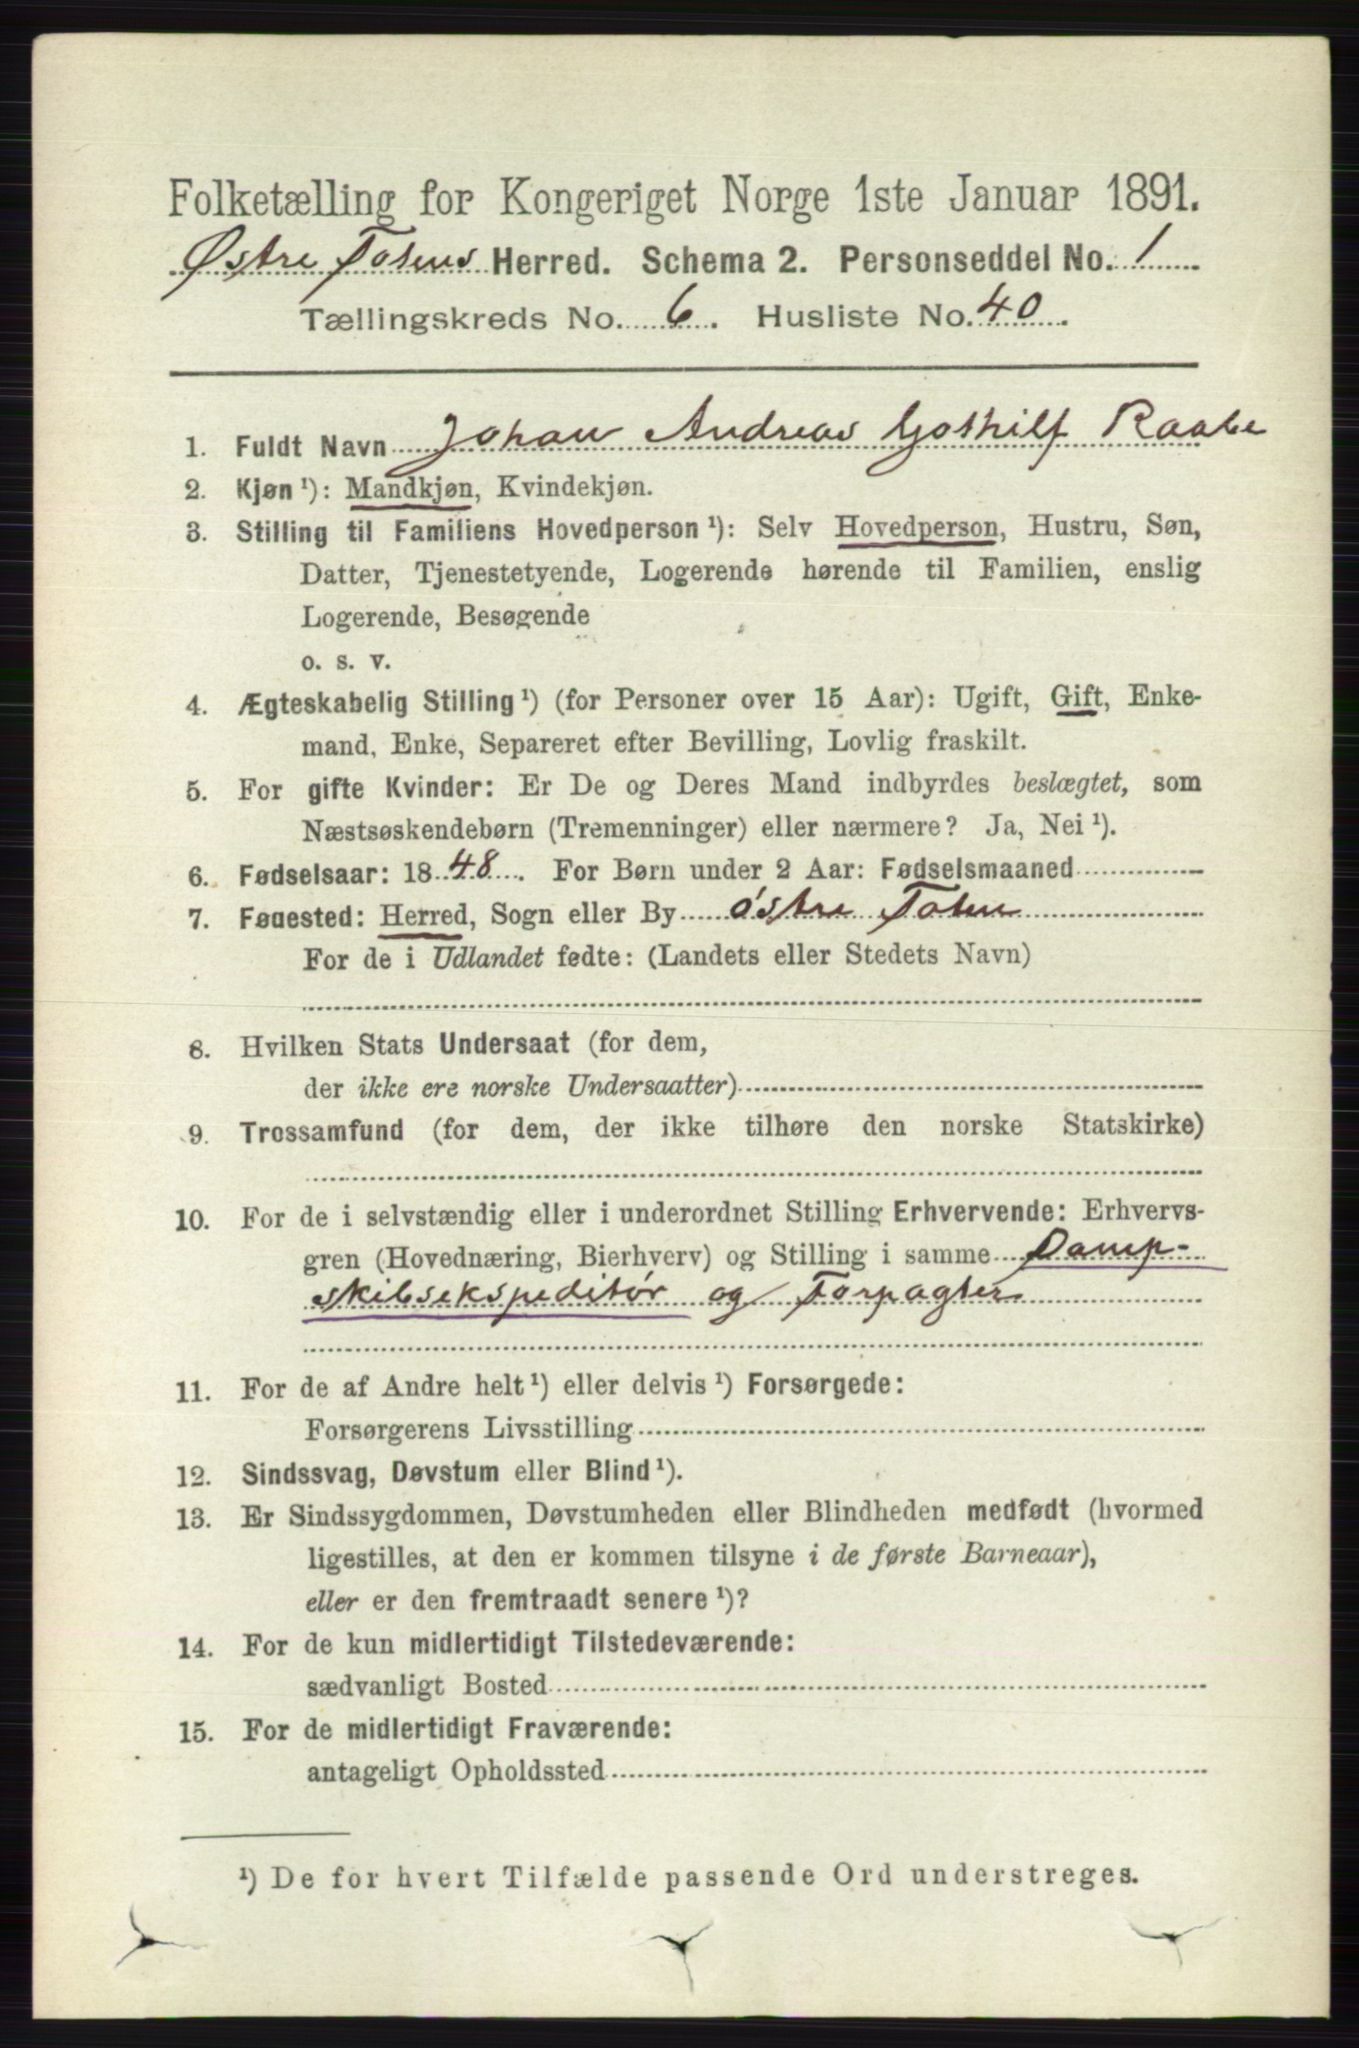 Folketælling for Kongeriget Norge 1ste Januar 1891.
Østre Totens Herred. Schema 2. Personseddel No. 1
Tællingskreds No. 6. Husliste No. 40.
1. Fuldt Navn Johan Andreas Gothilf Raabe
2. Kjøn ¹): Mandkjøn, Kvindekjøn.
3. Stilling til Familiens Hovedperson ¹): Selv Hovedperson, Hustru, Søn,
Datter, Tjenestetyende, Logerende hørende til Familien, enslig
Logerende, Besøgende
o. s. v.
4. Ægteskabelig Stilling ¹) (for Personer over 15 Aar): Ugift, Gift, Enke-
mand, Enke, Separeret efter Bevilling, Lovlig fraskilt.
5. For gifte Kvinder: Er De og Deres Mand indbyrdes beslægtet, som
Næstsøskendebørn (Tremenninger) eller nærmere? Ja, Nei ¹).
6. Fødselsaar: 1848. For Børn under 2 Aar: Fødselsmaaned
7. Føuested: Herred, Sogn eller By østre Toten
For de i Udlandet fødte: (Landets eller Stedets Navn)
8. Hvilken Stats Undersaat (for dem,
der ikke ere norske Undersaatter)
9. Trossamfund (for dem, der ikke tilhøre den norske Statskirke)
10. For de i selvstændig eller i underordnet Stilling Erhvervende: Erhvervs-
gren (Hovednæring, Bierhverv) og Stilling i samme Damp-
skibsekspeditør og Forpagter
11. For de af Andre helt ¹) eller delvis ¹) Forsørgede:
Forsørgerens Livsstilling
12. Sindssvag, Døvstum eller Blind ¹).
13. Er Sindssygdommen, Døvstumheden eller Blindheden medfødt (hvormed
ligestilles, at den er kommen tilsyne i de første Barneaar),
eller er den fremtraadt senere ¹)?
14. For de kun midlertidigt Tilstedeværende:
sædvanligt Bosted
15. For de midlertidigt Fraværende:
antageligt Opholdssted
¹) De for hvert Tilfælde passende Ord understreges.